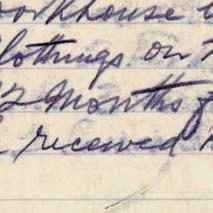 workhouse
clothings on
12 Months
received